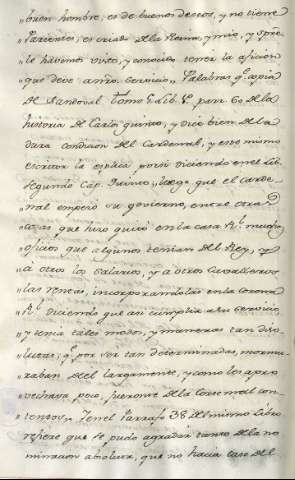 "buen hombre, es de buenos deseos, y no tiene
"Parientes, es criado de la Reina, y mio, y siempre
"le havemos visto, y conocido tener la aficion
"que deve a nro. servicio." Palabras q.e copia
de Sandoval tomo 1. lib. 1.º parr. 60 de la
historia de Carlos quinto, y dice bien de la
dura condicion del Cardenal, y este mismo
escritor la explica porsi diciendo en el Lib.
segundo Cap. quinto, luego que el carde-
"nal empezó su govierno, entre otras
"cosas que hizo quitó en la casa R.l muchos
"oficios que algunos tenian del Rey, y
"á otros los salarios, y a otros Cavalleros
"las rentas, incorporandolas en la Corona
"R.l diciendo que asi cumplia a su servicio
"y tenia tales modos, y maneras tan diso-
"lutas, q.e por ser tan determinadas, mormu-
"raban de el largamente, y como les apro-
"vechava poco, fueronse de la Corte mal con-
"tentos." Y en el Parrafo 38 del mismo Libro
refiere que se pudo agradar tanto de la no-
minacion absoluta, que no hacia caso del